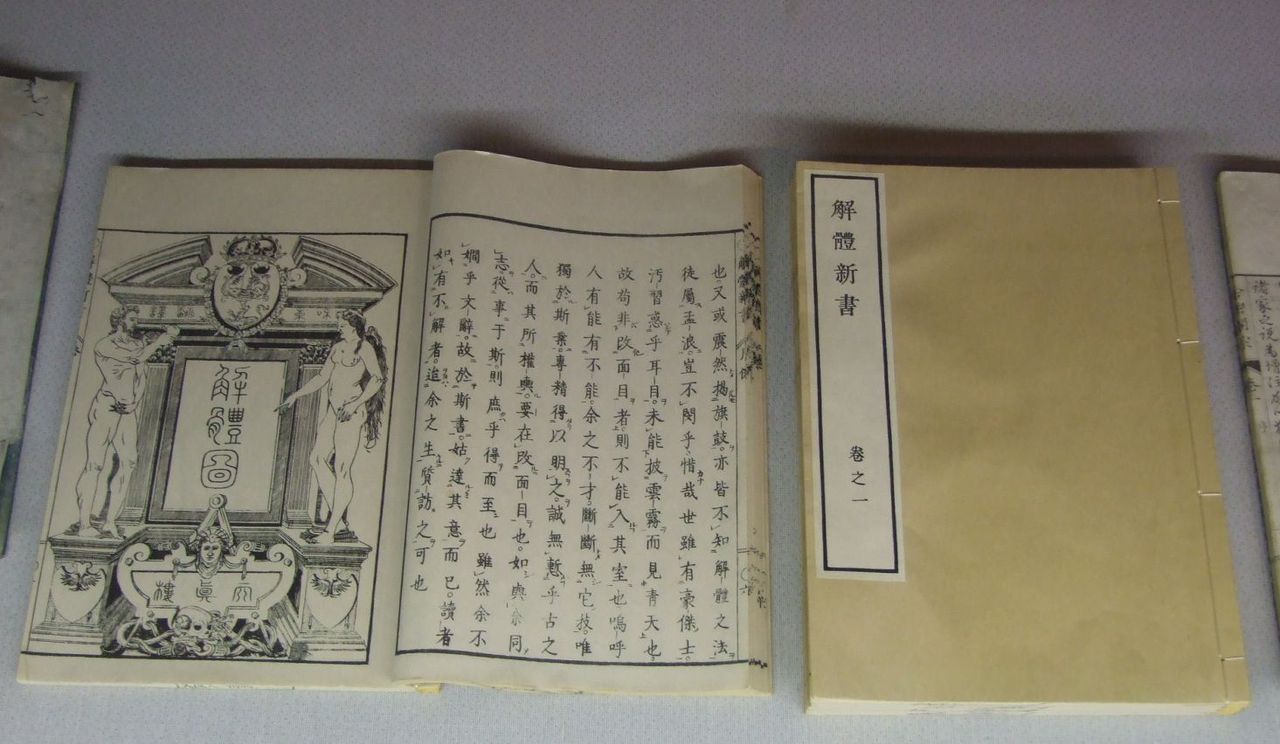 解體新書
卷之一
也又或震然揭旗鼓。亦皆不知解體之法
徒屬孟浪。豈不閔乎。惜哉世雖有豪傑士。
汚習惑乎耳目。未能披雲霧而見青天也。
故苟非改面目者。則不能入其室也嗚呼
人有能有不能。余之不才。斷斷無它技。唯
獨於斯業。專精得以明之。誠無慙乎古之
人。而其所權輿。要在改面目也。如與余同
志。從事于斯。則庶乎得而至也雖然余不
嫺乎文辭。故於斯書。姑達其意而已。讀者
如有不解者。追余之生質訪之可也
解體圖
天真樓